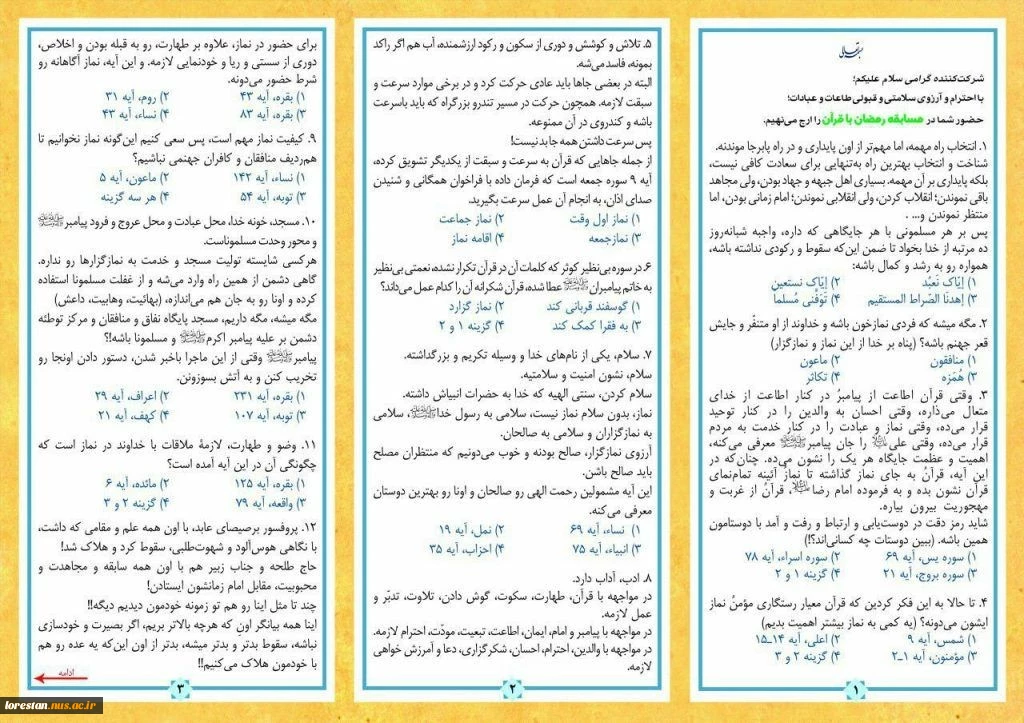 بسمه تعالی
شرکت‌کننده گرامی سلام علیکم؛
با احترام و آرزوی سلامتی و قبولی طاعات و عبادات؛
حضور شما در مسابقه رمضان با قرآن را ارج می‌نهیم.
۱. انتخاب راه مهمه، اما مهم‌تر از اون پایداری و در راه پابرجا موندنه.
شناخت و انتخاب بهترین راه به‌تنهایی برای سعادت کافی نیست،
بلکه پایداری بر آن مهمه. بسیاری اهل جبهه و جهاد بودن، ولی مجاهد
باقی نموندن؛ انقلاب کردن، ولی انقلابی نموندن؛ امام زمانی بودن، اما
منتظر نموندن و... .
پس بر هر مسلمونی با هر جایگاهی که داره، واجبه شبانه‌روز
ده مرتبه از خدا بخواد تا ضمن این‌که سقوط و رکودی نداشته باشه،
همواره رو به رشد و کمال باشه:
۱) إیّاک نَعبُد ۲) إیّاک نستعین
۳) إهدنَا الصّراط المستقیم ۴) تَوَفَّنی مُسلما
۲. مگه میشه که فردی نمازخون باشه و خداوند از او متنفّر و جایش
قعر جهنم باشه؟ (پناه بر خدا از این نماز و نمازگزار)
۱) منافقون ۲) ماعون
۳) هُمَزه ۴) تکاثر
۳. وقتی قرآن اطاعت از پیامبرُ در کنار اطاعت از خدای
متعال می‌ذاره، وقتی احسان به والدین را در کنار توحید
قرار می‌ده، وقتی نماز و عبادت را در کنار خدمت به مردم
قرار می‌ده، وقتی علی را جان پیامبرﷺ معرفی می‌کنه،
اهمیت و عظمت جایگاه هر یک را نشون می‌ده. چنان‌که در
این آیه، قرآنُ به جای نماز گذاشته تا نمازُ آئینه تمام‌نمای
قرآن نشون بده و به فرموده امام رضا، قرآنُ از غربت و
مهجوریت بیرون بیاره.
شاید رمز دقت در دوست‌یابی و ارتباط و رفت و آمد با دوستامون
همین باشه. (ببین دوستات چه کسانی‌اند؟!)
۱) سوره یس، آیه ۶۹ ۲) سوره اسراء، آیه ۷۸
۳) سوره بروج، آیه ۲۱ ۴) گزینه ۱ و ۲
۴. تا حالا به این فکر کردین که قرآن معیار رستگاری مؤمنُ نماز
ایشون می‌دونه؟ (یه کمی به نماز بیشتر اهمیت بدیم)
۱) شمس، آیه ۹ ۲) اعلی، آیه ۱۴ـ۱۵
۳) مؤمنون، آیه ۱ـ۲ ۴) گزینه ۲ و ۳
۱
۵. تلاش و کوشش و دوری از سکون و رکود ارزشمنده، آب هم اگر راکد
بمونه، فاسد می‌شه.
البته در بعضی جاها باید عادی حرکت کرد و در برخی موارد سرعت و
سبقت لازمه. همچون حرکت در مسیر تندرو بزرگراه که باید باسرعت
باشه و کندروی در آن ممنوعه.
پس سرعت داشتن همه جا بد نیست!
از جمله جاهایی که قرآن به سرعت و سبقت از یکدیگر تشویق کرده،
آیه ۹ سوره جمعه است که فرمان داده با فراخوان همگانی و شنیدن
صدای اذان، به انجام آن عمل سرعت بگیرید.
۱) نماز اول وقت ۲) نماز جماعت
۳) نمازجمعه ۴) اقامه نماز
۶. در سوره بی‌نظیر کوثر که کلمات آن در قرآن تکرار نشده، نعمتی بی‌نظیر
به خاتم پیامبرانﷺ عطا شده، قرآن شکرانه آن را کدام عمل می‌داند؟
۱) گوسفند قربانی کند ۲) نماز گزارد
۳) به فقرا کمک کند ۴) گزینه ۱ و ۲
۷. سلام، یکی از نام‌های خدا و وسیله تکریم و بزرگداشته.
سلام، نشون امنیت و سلامتیه.
سلام کردن، سنتی الهیه که خدا به حضرات انبیاش داشته.
نماز، بدون سلام نماز نیست، سلامی به رسول خداﷺ، سلامی
به نمازگزاران و سلامی به صالحان.
آرزوی نمازگزار، صالح بودنه و خوب می‌دونیم که منتظران مصلح
باید صالح باشن.
این آیه مشمولین رحمت الهی رو صالحان و اونا رو بهترین دوستان
معرفی می‌کنه.
۱) نساء، آیه ۶۹ ۲) نمل، آیه ۱۹
۳) انبیاء، آیه ۷۵ ۴) احزاب، آیه ۳۵
۸. ادب، آداب دارد.
در مواجهه با قرآن، طهارت، سکوت، گوش دادن، تلاوت، تدبّر و
عمل لازمه.
در مواجهه با پیامبر و امام، ایمان، اطاعت، تبعیت، مودّت، احترام لازمه.
در مواجهه با والدین، احترام، احسان، شکرگزاری، دعا و آمرزش خواهی
لازمه.
۲
برای حضور در نماز، علاوه بر طهارت، رو به قبله بودن و اخلاص،
دوری از سستی و ریا و خودنمایی لازمه. و این آیه، نماز آگاهانه رو
شرط حضور می‌دونه.
۱) بقره، آیه ۴۳ ۲) روم، آیه ۳۱
۳) بقره، آیه ۸۳ ۴) نساء، آیه ۴۳
۹. کیفیت نماز مهم است، پس سعی کنیم این‌گونه نماز نخوانیم تا
هم‌ردیف منافقان و کافران جهنمی نباشیم؟
۱) نساء، آیه ۱۴۲ ۲) ماعون، آیه ۵
۳) توبه، آیه ۵۴ ۴) هر سه گزینه
۱۰. مسجد، خونه خدا، محل عبادت و محل عروج و فرود پیامبرﷺ
و محور وحدت مسلموناست.
هرکسی شایسته تولیت مسجد و خدمت به نمازگزارها رو نداره.
گاهی دشمن از همین راه وارد می‌شه و از غفلت مسلمونا استفاده
کرده و اونا رو به جان هم می‌اندازه، (بهائیت، وهابیت، داعش)
مگه میشه، مگه داریم، مسجد پایگاه نفاق و منافقان و مرکز توطئه
دشمن بر علیه پیامبر اکرمﷺ و مسلمونا باشه!؟
پیامبرﷺ وقتی از این ماجرا باخبر شدن، دستور دادن اونجا رو
تخریب کنن و به آتش بسوزونن.
۱) بقره، آیه ۲۳۱ ۲) اعراف، آیه ۲۹
۳) توبه، آیه ۱۰۷ ۴) کهف، آیه ۲۱
۱۱. وضو و طهارت، لازمهٔ ملاقات با خداوند در نماز است که
چگونگی آن در این آیه آمده است؟
۱) بقره، آیه ۱۲۵ ۲) مائده، آیه ۶
۳) واقعه، آیه ۷۹ ۴) گزینه ۲ و ۳
۱۲. پروفسور برصیصای عابد، با اون همه علم و مقامی که داشت،
با نگاهی هوس‌آلود و شهوت‌طلبی، سقوط کرد و هلاک شد!
حاج طلحه و جناب زبیر هم با اون همه سابقه و مجاهدت و
محبوبیت، مقابل امام زمانشون ایستادن!
چند تا مثل اینا رو هم تو زمونه خودمون دیدیم دیگه!!
اینا همه بیانگر اون که هرچه بالاتر بریم، اگر بصیرت و خودسازی
نباشه، سقوط بدتر و بدتر میشه، بدتر از اون این‌که یه عده رو هم
با خودمون هلاک می‌کنیم!!
ادامه
۳
lorestan.nus.ac.ir